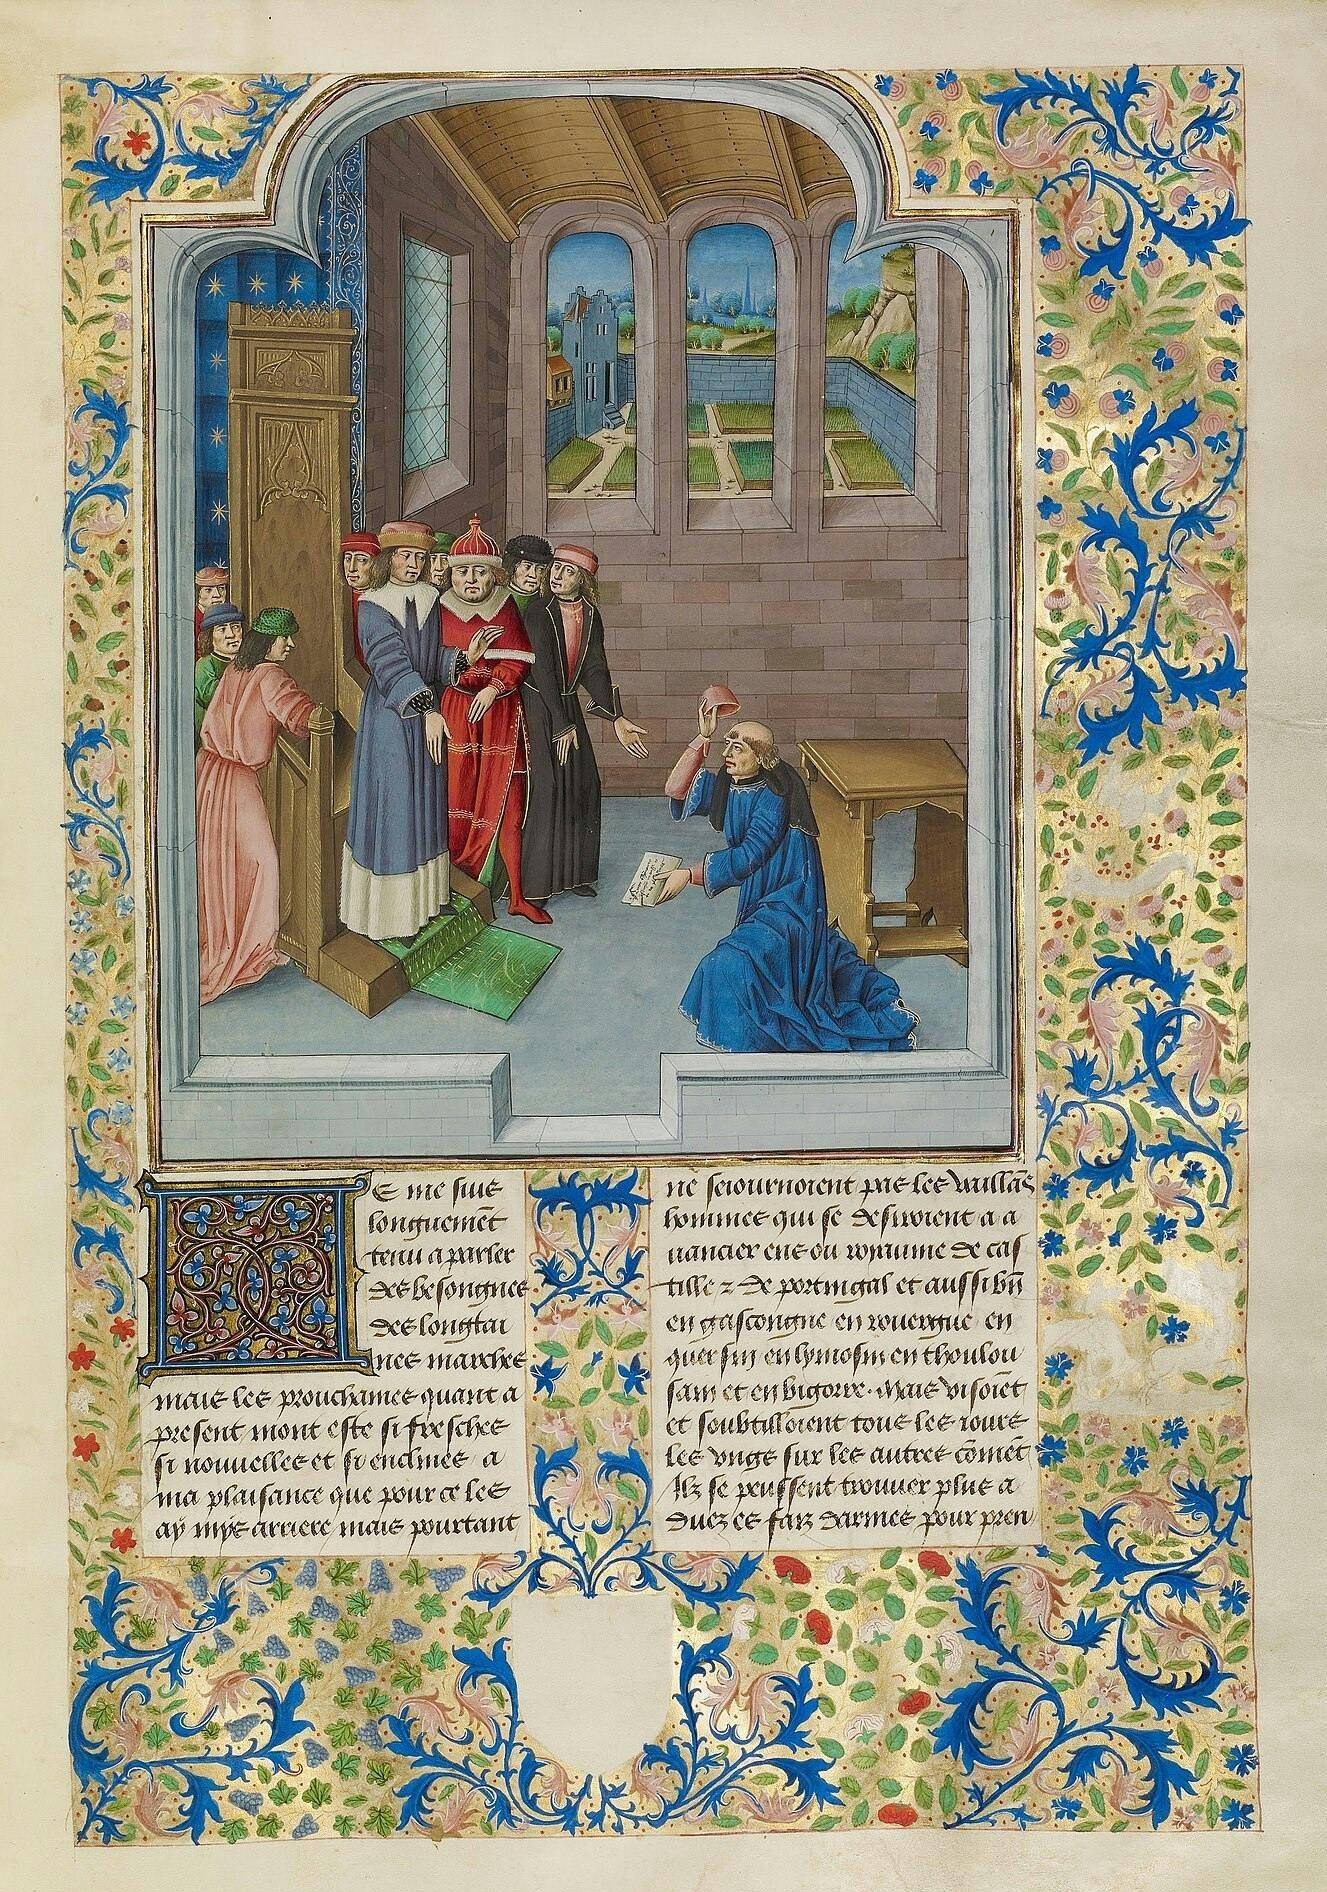 Je me suis
longuemēt
tenu a parler
des besongnes
des longtai
nes marches
mais les prouchaines quant a
present mont este si fresches
si nouuelles et si enclines a
ma plaisance que pour ce les
ay mys arriere mais pourtant
ne seiournoient pas les vaillās
hommes qui se desiroient a a
uancier ens ou royaume de cas
tille ⁊ de portingal et aussi bn̄
en gascongne en rouergue en
quersin en lymosin en thoulou
sain et en bigorre. Mais visoiēt
et soubtilloient tous les iours
les vngs sur les autres cōmēt
Ilz se peussent trouuer plus a
duez es faiz darmes pour pren